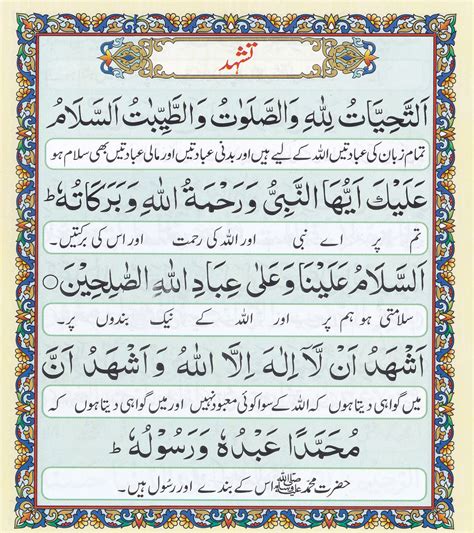 تشہد
اَلتَّحِيَّاتُ لِلّٰهِ وَالصَّلَوٰتُ وَالطَّيِّبٰتُ اَلسَّلَامُ
تمام زبان کی عبادتیں اللہ کے لیے ہیں اور بدنی عبادتیں اور مالی عبادتیں بھی سلام ہو
عَلَيْكَ اَيُّهَا النَّبِيُّ وَرَحْمَةُ اللّٰهِ وَبَرَكَاتُهٗ ؕ
تم پر اے نبی اور اللہ کی رحمت اور اس کی برکتیں۔
اَلسَّلَامُ عَلَيْنَا وَعَلٰى عِبَادِ اللّٰهِ الصّٰلِحِيْنَ ○
سلامتی ہو ہم پر اور اللہ کے نیک بندوں پر۔
اَشْهَدُ اَنْ لَّآ اِلٰهَ اِلَّا اللّٰهُ وَ اَشْهَدُ اَنَّ
میں گواہی دیتا ہوں کہ اللہ کے سوا کوئی معبود نہیں اور میں گواہی دیتا ہوں کہ
مُحَمَّدًا عَبْدُهٗ وَرَسُوْلُهٗ ؕ
حضرت محمد ﷺ اس کے بندے اور رسول ہیں۔